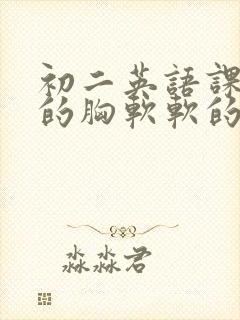 初二英語課
的胸軟軟的
淼淼君